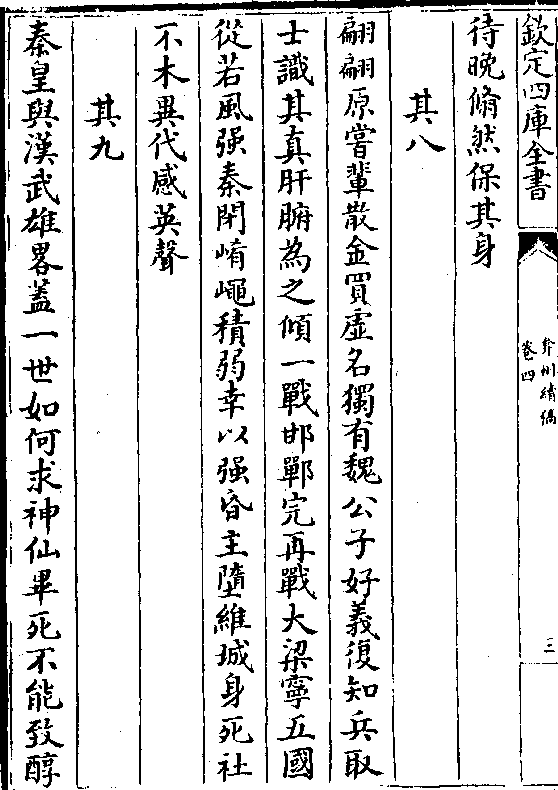 欽定四庫全書
弇州續稿
卷四
三
待晚翛然保其身
其八
翩翩原嘗輩散金買虛名獨有魏公子好義復知兵取
士識其真肝腑為之傾一戰邯鄲完再戰大梁寧五國
從若風强秦閉崤崦積弱幸以强昏主墮維城身死社
不木異代感英聲
其九
秦皇與漢武雄畧蓋一世如何求神仙畢死不能致醇